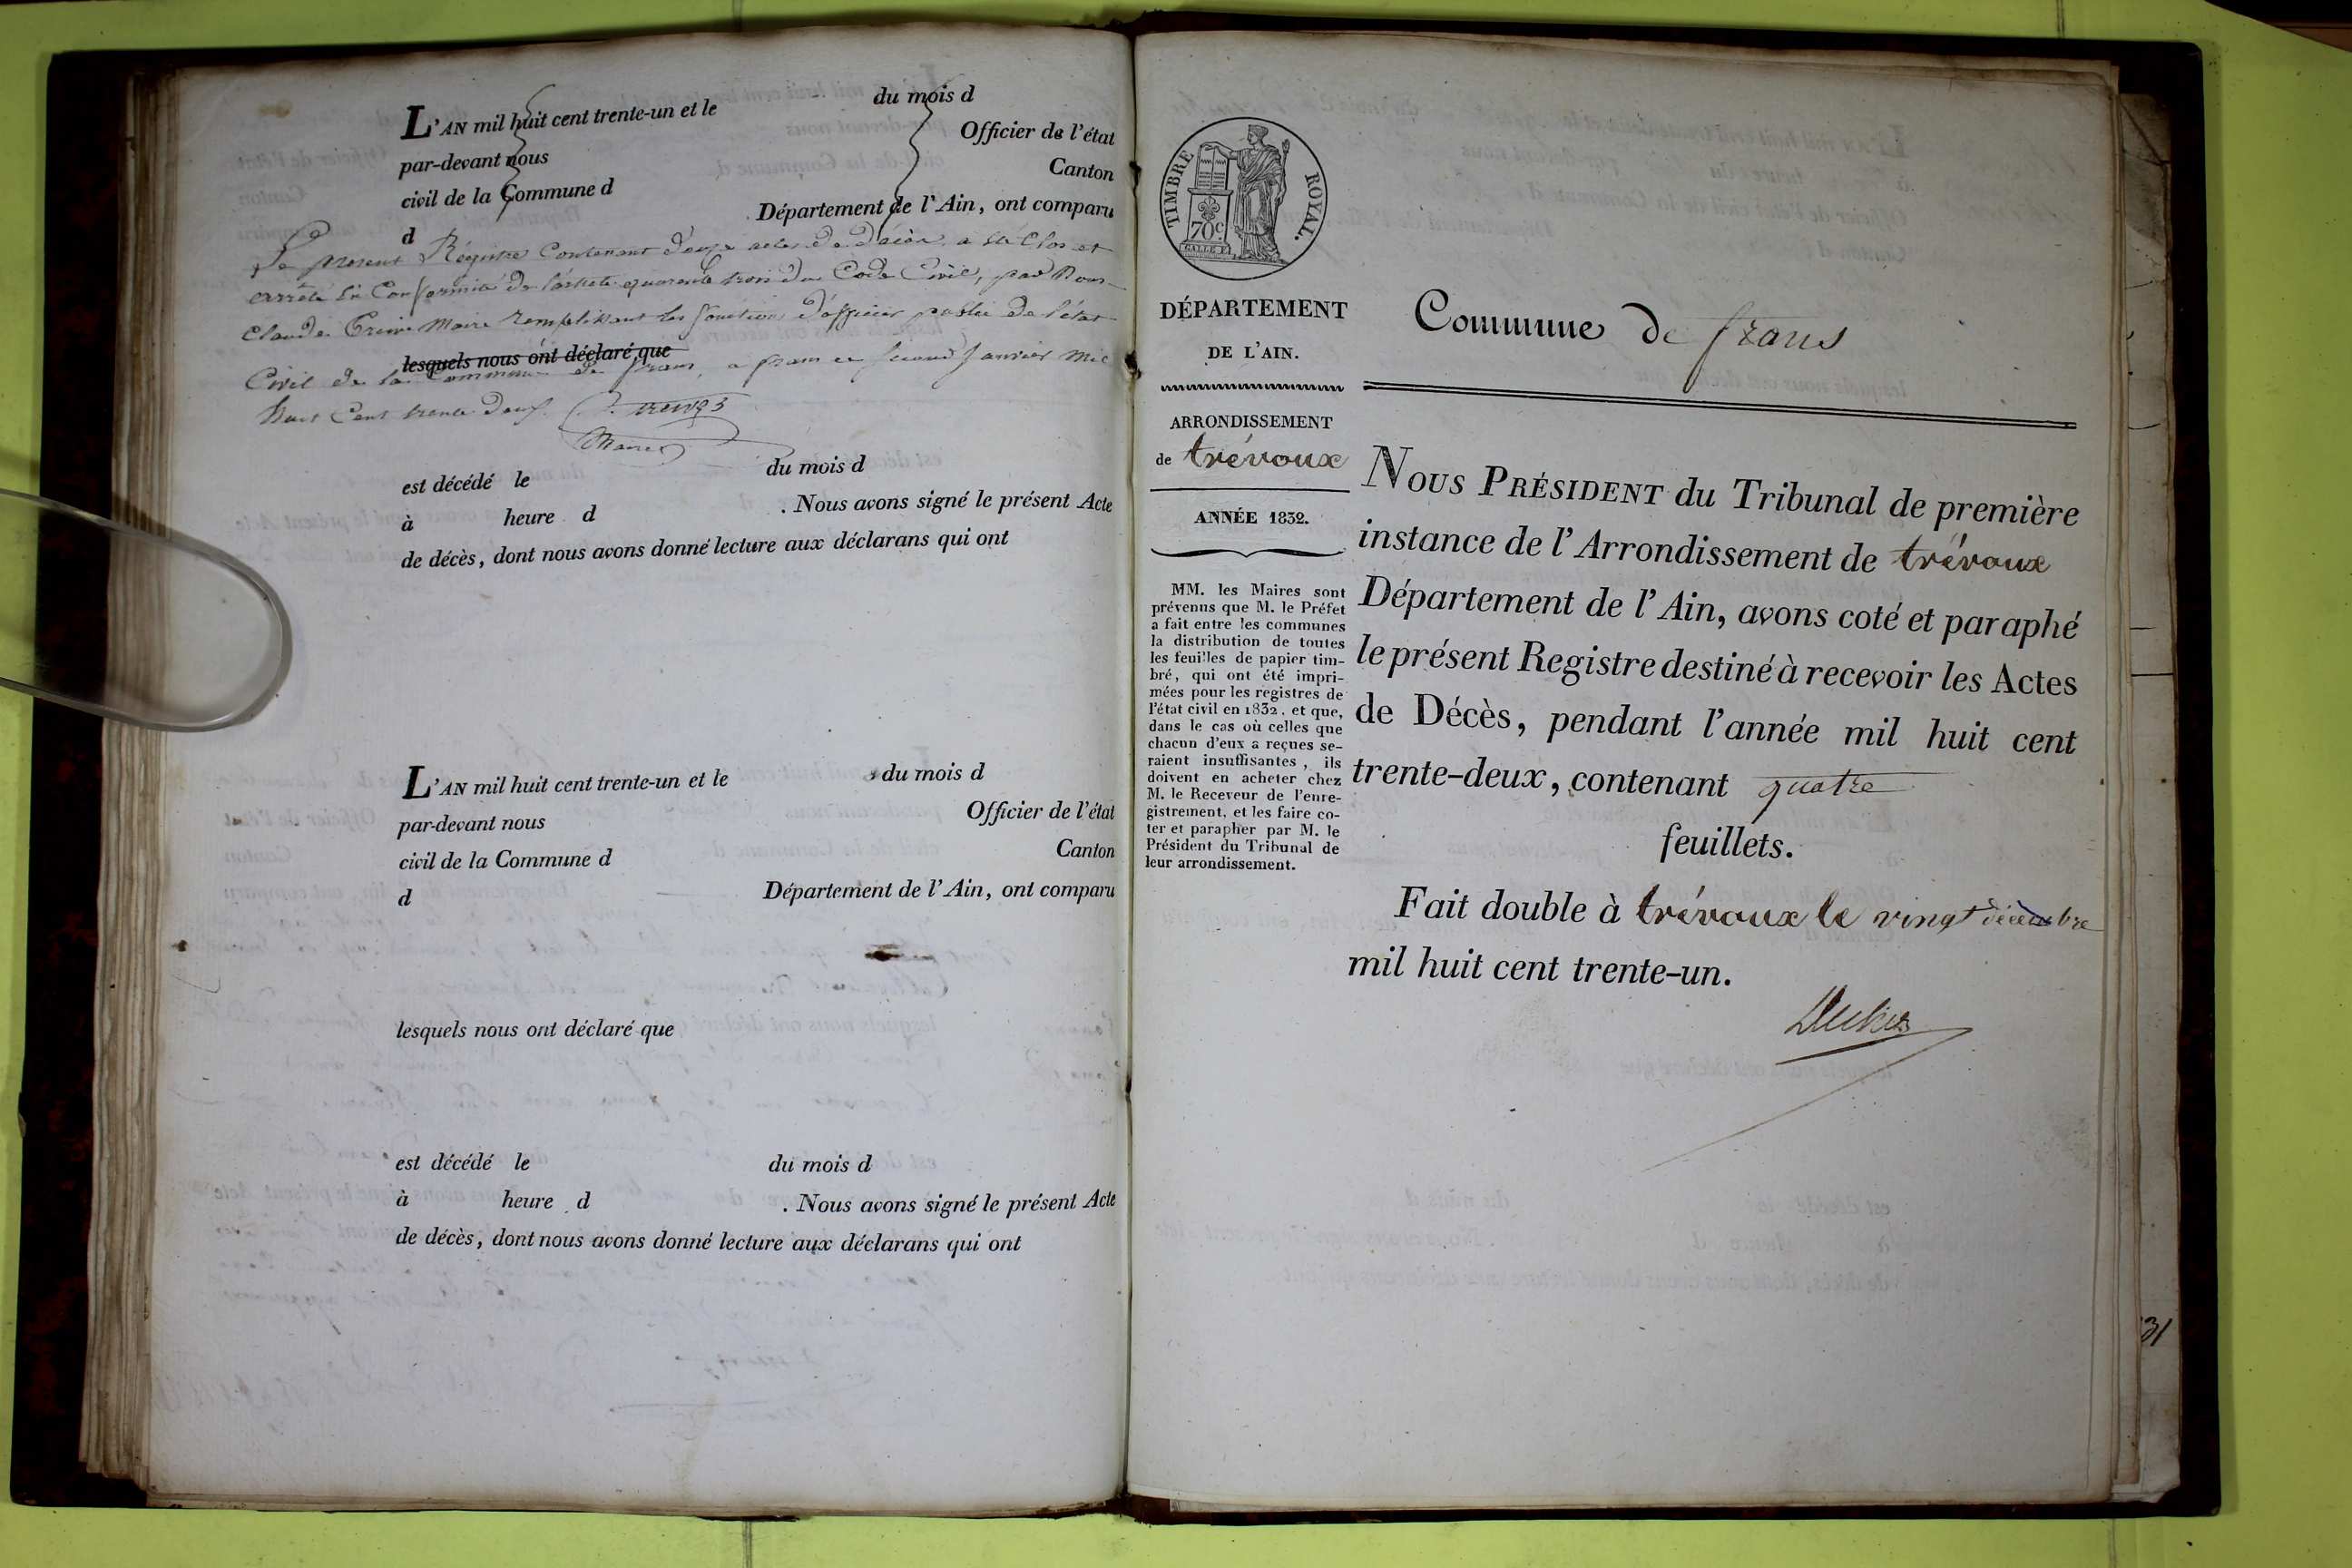 L'AN mil huit cent trente-un et le du mois d
par-devant nous Officier de l'état
civil de la Commune d Canton
d Département de l'Ain, ont comparu
Le present Régistre Contenant actes de décès a été Clos et
arrêté en Conformité de quarente trois du Code Civil, par Nous
Claude Maire remplissant les fonctions d'officier public de l'état
lesquels nous ont déclaré que
Civil de la Commune de frans, a frans ce second Janvier mil
huit Cent trente deux
Maire
est décédé le du mois d
à heure d . Nous avons signé le présent Acte
de décès, dont nous avons donné lecture aux déclarans qui ont
L'AN mil huit cent trente-un et le du mois d
par-devant nous Officier de l'état
civil de la Commune d Canton
d Département de l'Ain, ont comparu
lesquels nous ont déclaré que
est décédé le du mois d
à heure d . Nous avons signé le présent Acte
de décès, dont nous avons donné lecture aux déclarans qui ont
TIMBRE ROYAL.
70c.
DÉPARTEMENT
DE L'AIN.
ARRONDISSEMENT
de trévoux
ANNÉE 1832.
MM. les Maires sont
prévenus que M. le Préfet
a fait entre les communes
la distribution de toutes
les feuilles de papier tim-
bré, qui ont été impri-
mées pour les registres de
l'état civil en 1832, et que,
dans le cas où celles que
chacun d'eux a reçues se-
raient insuffisantes, ils
doivent en acheter chez
M. le Receveur de l'enre-
gistrement, et les faire co-
ter et parapher par M. le
Président du Tribunal de
leur arrondissement.
Commune de frans
NOUS PRÉSIDENT du Tribunal de première
instance de l'Arrondissement de trévoux
Département de l'Ain, avons coté et paraphé
le présent Registre destiné à recevoir les Actes
de Décès, pendant l'année mil huit cent
trente-deux, contenant quatre
feuillets.
Fait double à trévoux le vingt décembre
mil huit cent trente-un.
31